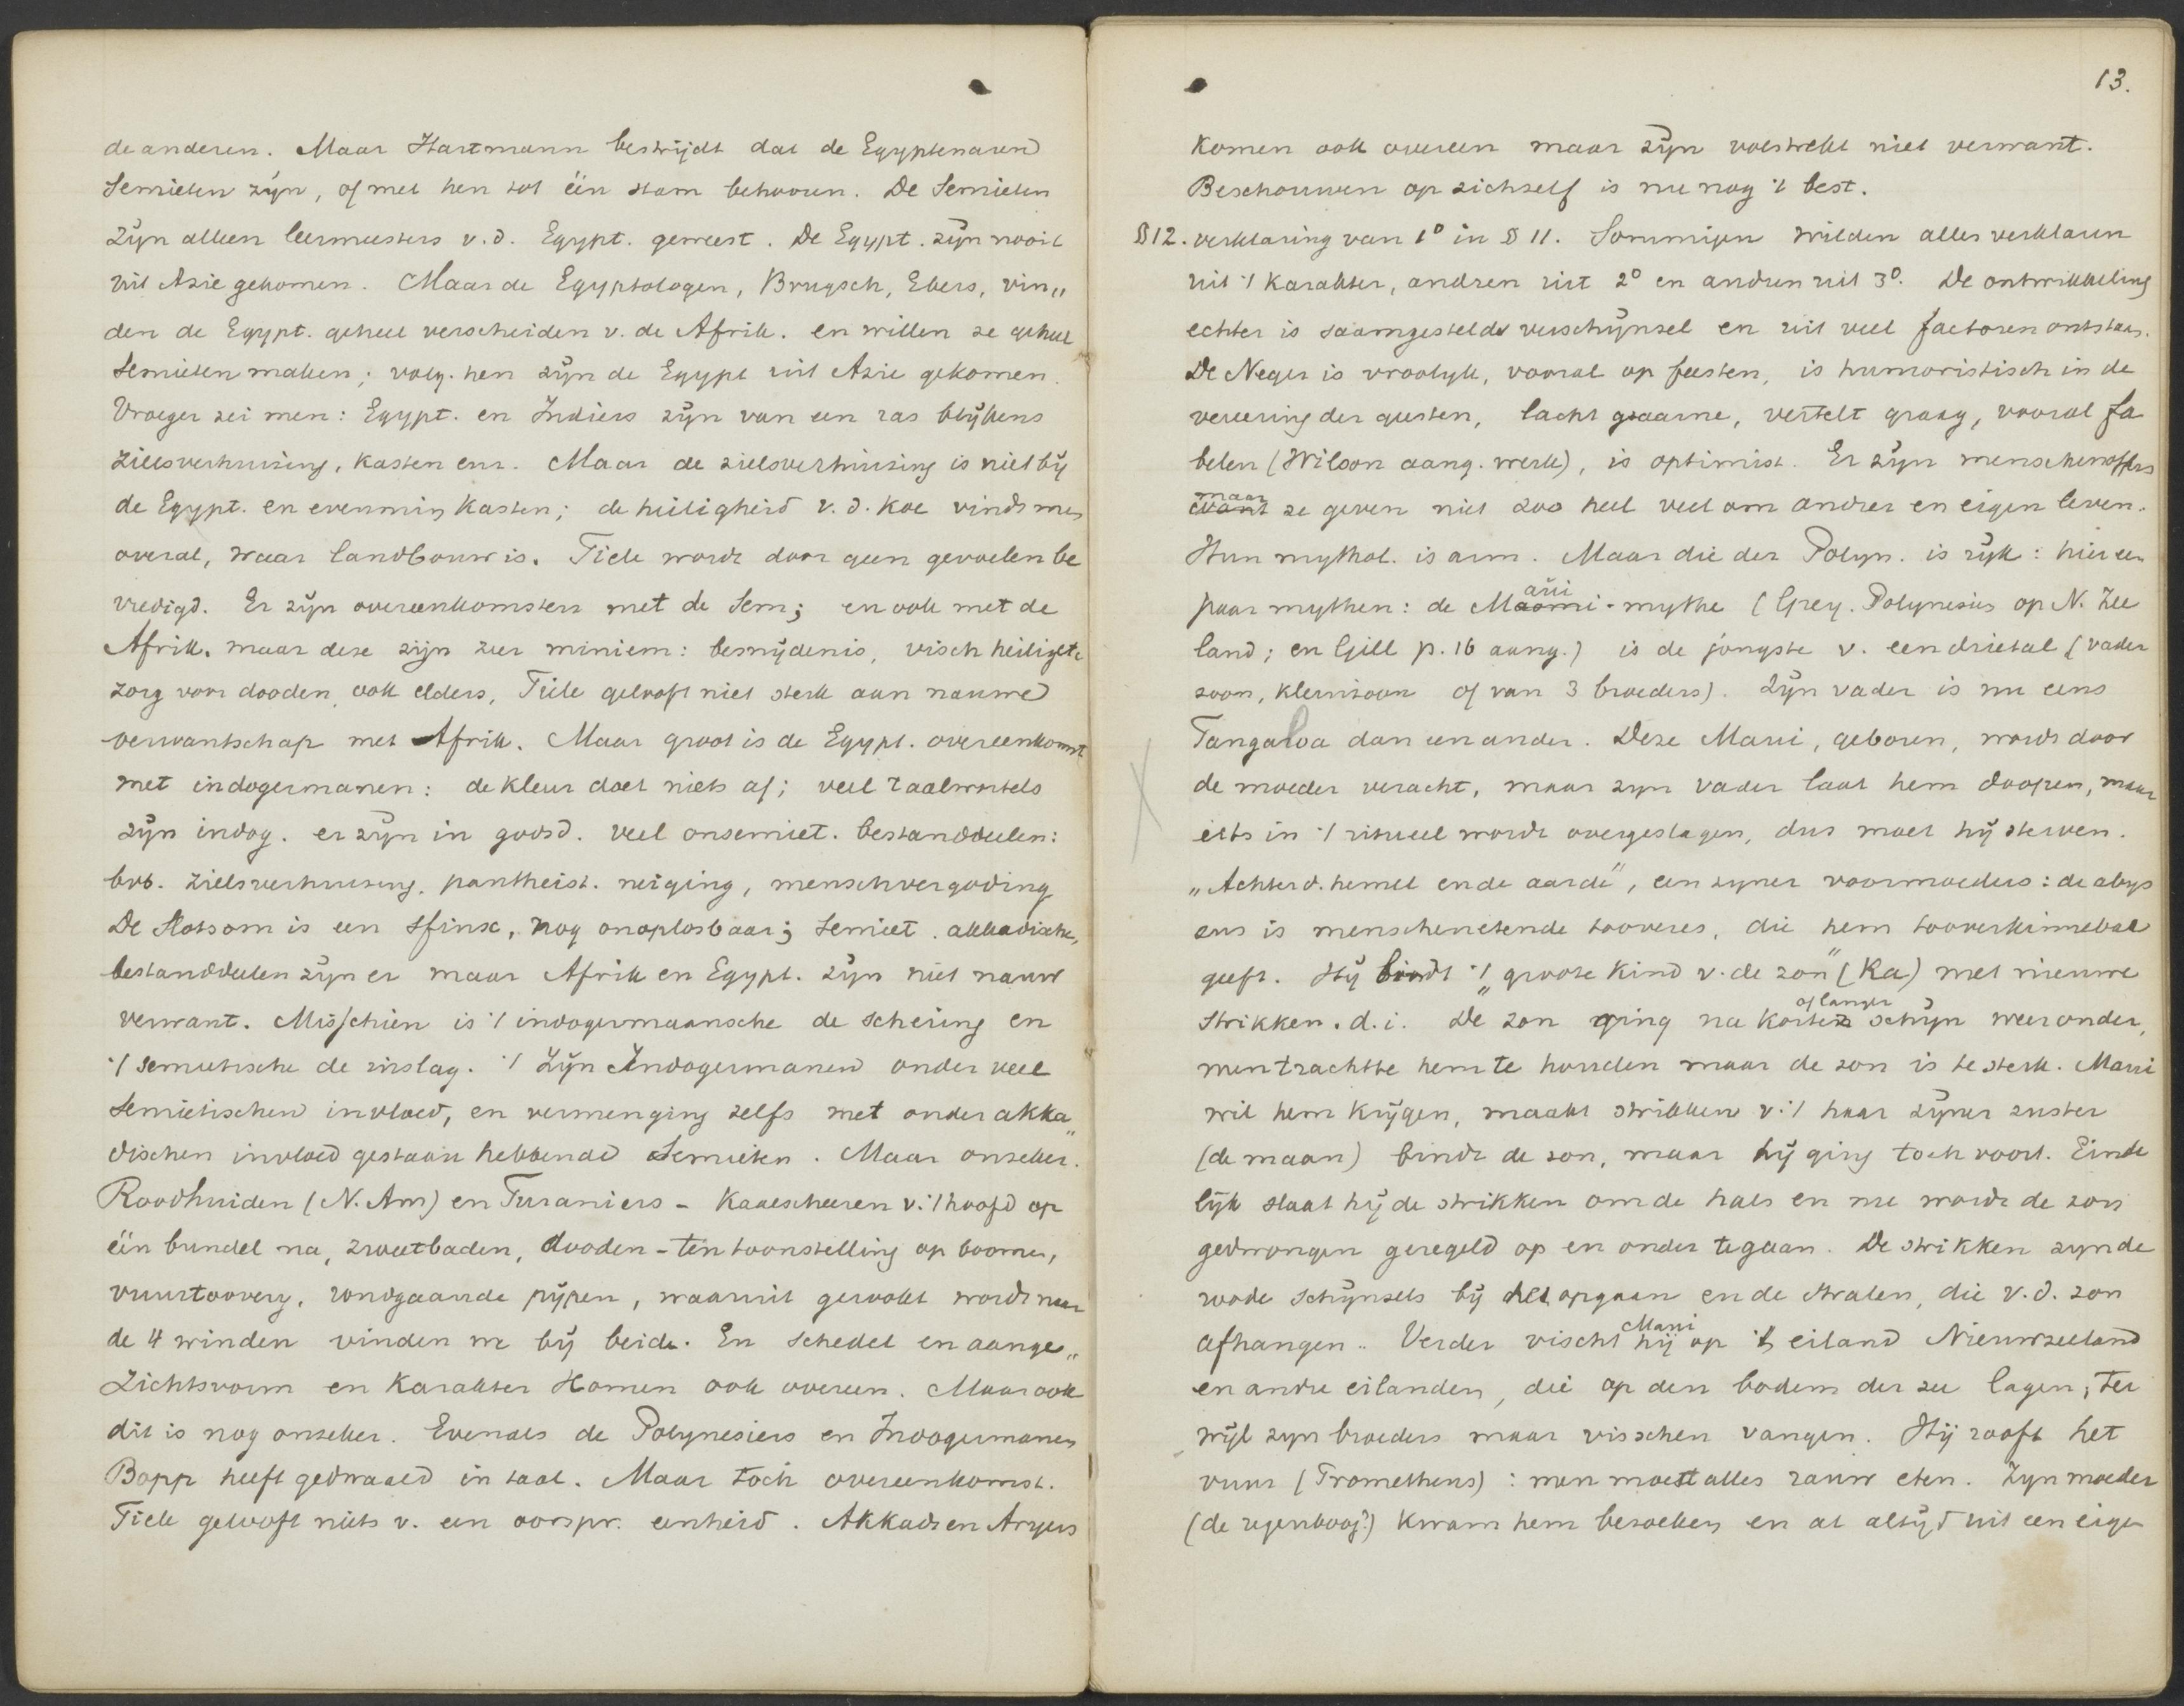 de anderen. Maar Hartmann bestrijdt dat de Egyptenaren
Semieten zijn, of met hen tot één stam behooren. De Semieten
zijn alleen leermeesters v.d. Egypt. geweest. De Egypt. zijn nooit
uit Azie gekomen. Maar de Egyptologen, Brugsch, Ebers, vin„
den de Egypt. geheel verscheiden v. de Afrik. en willen ze geheel
Semieten maken; volg. hen zijn de Egypt uit Azie gekomen.
Vroeger zei men: Egypt. en Indiers zijn van een ras blijkens
zielsverhuizing, kasten enz. Maar de zielsverhuizing is niet bij
de Egypt. en evenmin kasten; de heiligheid v.d. koe vindt men
overal, waar landbouw is. Tiele wordt door geen gevoelen be
vredigd. Er zijn overeenkomsten met de Sem; en ook met de
Afrik. maar deze zijn zeer miniem: besnijdenis, visch heilig etc
zorg voor dooden, ook elders, Tiele gelooft niet sterk aan nauwe
verwantschap met Afrik. Maar groot is de Egypt. overeenkomst
met indogermanen: de kleur doet niets af; veel taalwortels
zijn indog. er zijn in godsd. veel onsemiet. bestanddeelen:
bvb. zielsverhuizing, pantheist. neiging, menschvergoding
De Slotsom is een sfinx, nog onoplosbaar; semiet. akkadische,
bestanddeelen zijn er maar Afrik en Egypt. zijn niet nauw
verwant. Misschien is 't indogermaansche de schering en
't semietische de inslag. 't Zijn Indogermanen onder veel
Semietischen invloed, en vermenging zelfs met onder akka„
dischen invloed gestaan hebbende Semieten. Maar onzeker.
Roodhuiden (N. Am) en Turaniers - Kaalscheeren v. 't hoofd op
één bundel na, zweetbaden, dooden-tentoonstelling op boomen,
vuurtoovery, rondgaande pijpen, waaruit gerookt wordt naar
de 4 winden vinden we bij beide. En schedel en aange„
zichtsvorm en karakter komen ook overeen. Maar ook
dit is nog onzeker. Evenals de Polynesiers en Indogermanen
Bopp heeft gedwaald in taal. Maar toch overeenkomst.
Tiele gelooft niets v. een oorspr. eenheid. Akkads en Aryers
13.
komen ook overeen maar zijn volstrekt niet verwant.
Beschouwen op zichzelf is nu nog 't best.
§12. verklaring van 1º in § 11. Sommigen wilden alles verklaren
uit 't karakter, andren uit 2º en andren uit 3º. De ontwikkeling
echter is saamgesteld verschijnsel en uit veel factoren ontstaan.
De Neger is vroolyk, vooral op feesten, is humoristisch in de
vereering der geesten, lacht gaarne, vertelt graag, vooral fa
belen (Wilson aang. werk), is optimist. Er zijn menschenoffers
maar
want ze geven niet zoo heel veel om andrer en eigen leven.
Hun mythol. is arm. Maar die der Polyn. is rijk: hier een
paar mythen: de Maui-mythe (Grey. Polynesiers op N. Zee
land; en Gill p. 16 aang.) is de jongste v. een drietal (vader
zoon, kleinzoon of van 3 broeders). Zijn vader is nu eens
Tangaloa dan een ander. Deze Maui, geboren, wordt door
de moeder veracht, maar zyn vader laat hem doopen, maar
iets in 't ritueel wordt overgeslagen, dus moet hij sterven.
„Achter d. hemel en de aarde", een zyner voormoeders: de abys
sus is menschenetende tooveres, die hem tooverkinnebak
geeft. Hij bindt 't „groote kind v. de zon" (Ra) met nieuwe
of langer
strikken. d.i. De zon ging na korten schijn weer onder,
men trachtte hem te houden maar de zon is te sterk. Maui
wil hem krijgen, maakt strikken v. 't haar zijner zuster
(de maan) bindt de zon, maar hij ging toch voort. Einde
lijk slaat hij de strikken om de hals en nu wordt de zon
gedwongen geregeld op en onder te gaan. De strikken zyn de
roode schijnsels bij het opgaan en de stralen, die v.d. zon
afhangen. Verder vischt Maui hij op 't eiland Nieuwzeeland
en andre eilanden, die op den bodem der zee lagen, ter
wijl zyn broeders maar visschen vangen. Hij rooft het
vuur (Prometheus): men moest alles rauw eten. Zyn moeder
(de regenboog?) kwam hem bezoeken en at altijd uit een eigen